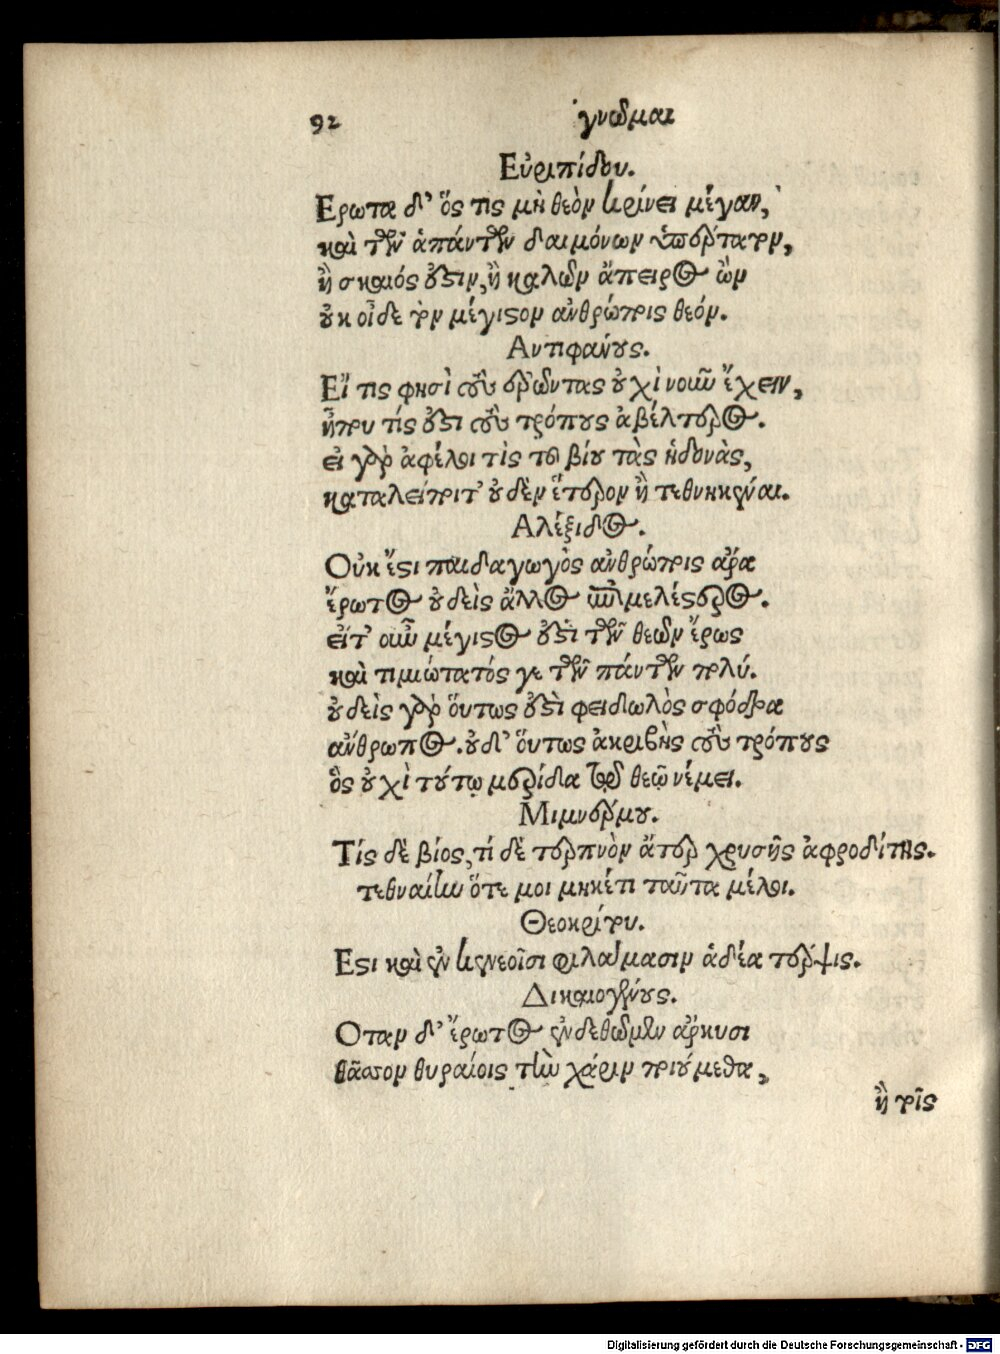 92 γνῶμαι
Εὐριπίδου.
Ερωτα δ' ὅς τις μὴ θεὸν κρίνει μέγαν,
καὶ τῶν ἁπάντων δαιμόνων ὑπέρτατον,
ἢ σκαιός ὅστιν, ἢ καλῶν ἄπειρος ὢν
οὐκ οἶδε τὸν μέγιστον ἀνθρώποις θεόν.
Αντιφάνους.
Εἴ τις φησὶ τοὺς ἐρῶντας οὐχὶ νοῦν ἔχειν,
ἦπου τίς ἐστι τοὺς τρόπους ἀβέλτερος.
εἰ γὰρ ἀφέλοι τὶς τοῦ βίου τὰς ἡδονὰς,
καταλείποιτ' οὐδὲν ἕτερον ἢ τεθνηκέναι.
Αλέξιδος.
Οὐκ ἔστι παιδαγωγὸς ἀνθρώποις ἄρα
ἔρωτος οὐδεὶς ἄλλος ἐπιμελέστερος.
εἶτ' οὖν μέγιστος ἐστὶ τῶν θεῶν ἔρως
καὶ τιμιώτατός γε τῶν πάντων πολύ.
οὐδεὶς γὰρ οὕτως ἐστὶ φειδωλὸς σφόδρα
ἄνθρωπος. οὐδ' οὕτως ἀκριβὴς τοὺς τρόπους
ὃς οὐχὶ τούτῳ μερίδα τῷ θεῷ νέμει.
Μιμνέρμου.
Τίς δὲ βίος, τί δὲ τερπνὸν ἄτερ χρυσῆς ἀφροδίτης.
τεθναίην ὅτε μοι μηκέτι ταῦτα μέλοι.
Θεοκρίτου.
Εστι καὶ ἐν κενεοῖσι φιλάμασιν ἁδέα τέρψις.
Δικαιογένους.
Οταν δ' ἔρωτος ἐνδεθῶμεν ἄρκυσι
θᾶσσον θυραίοις τὴν χάριν ποιούμεθα,
ἢ τοῖς
Digitalisierung gefördert durch die Deutsche Forschungsgemeinschaft - DFG